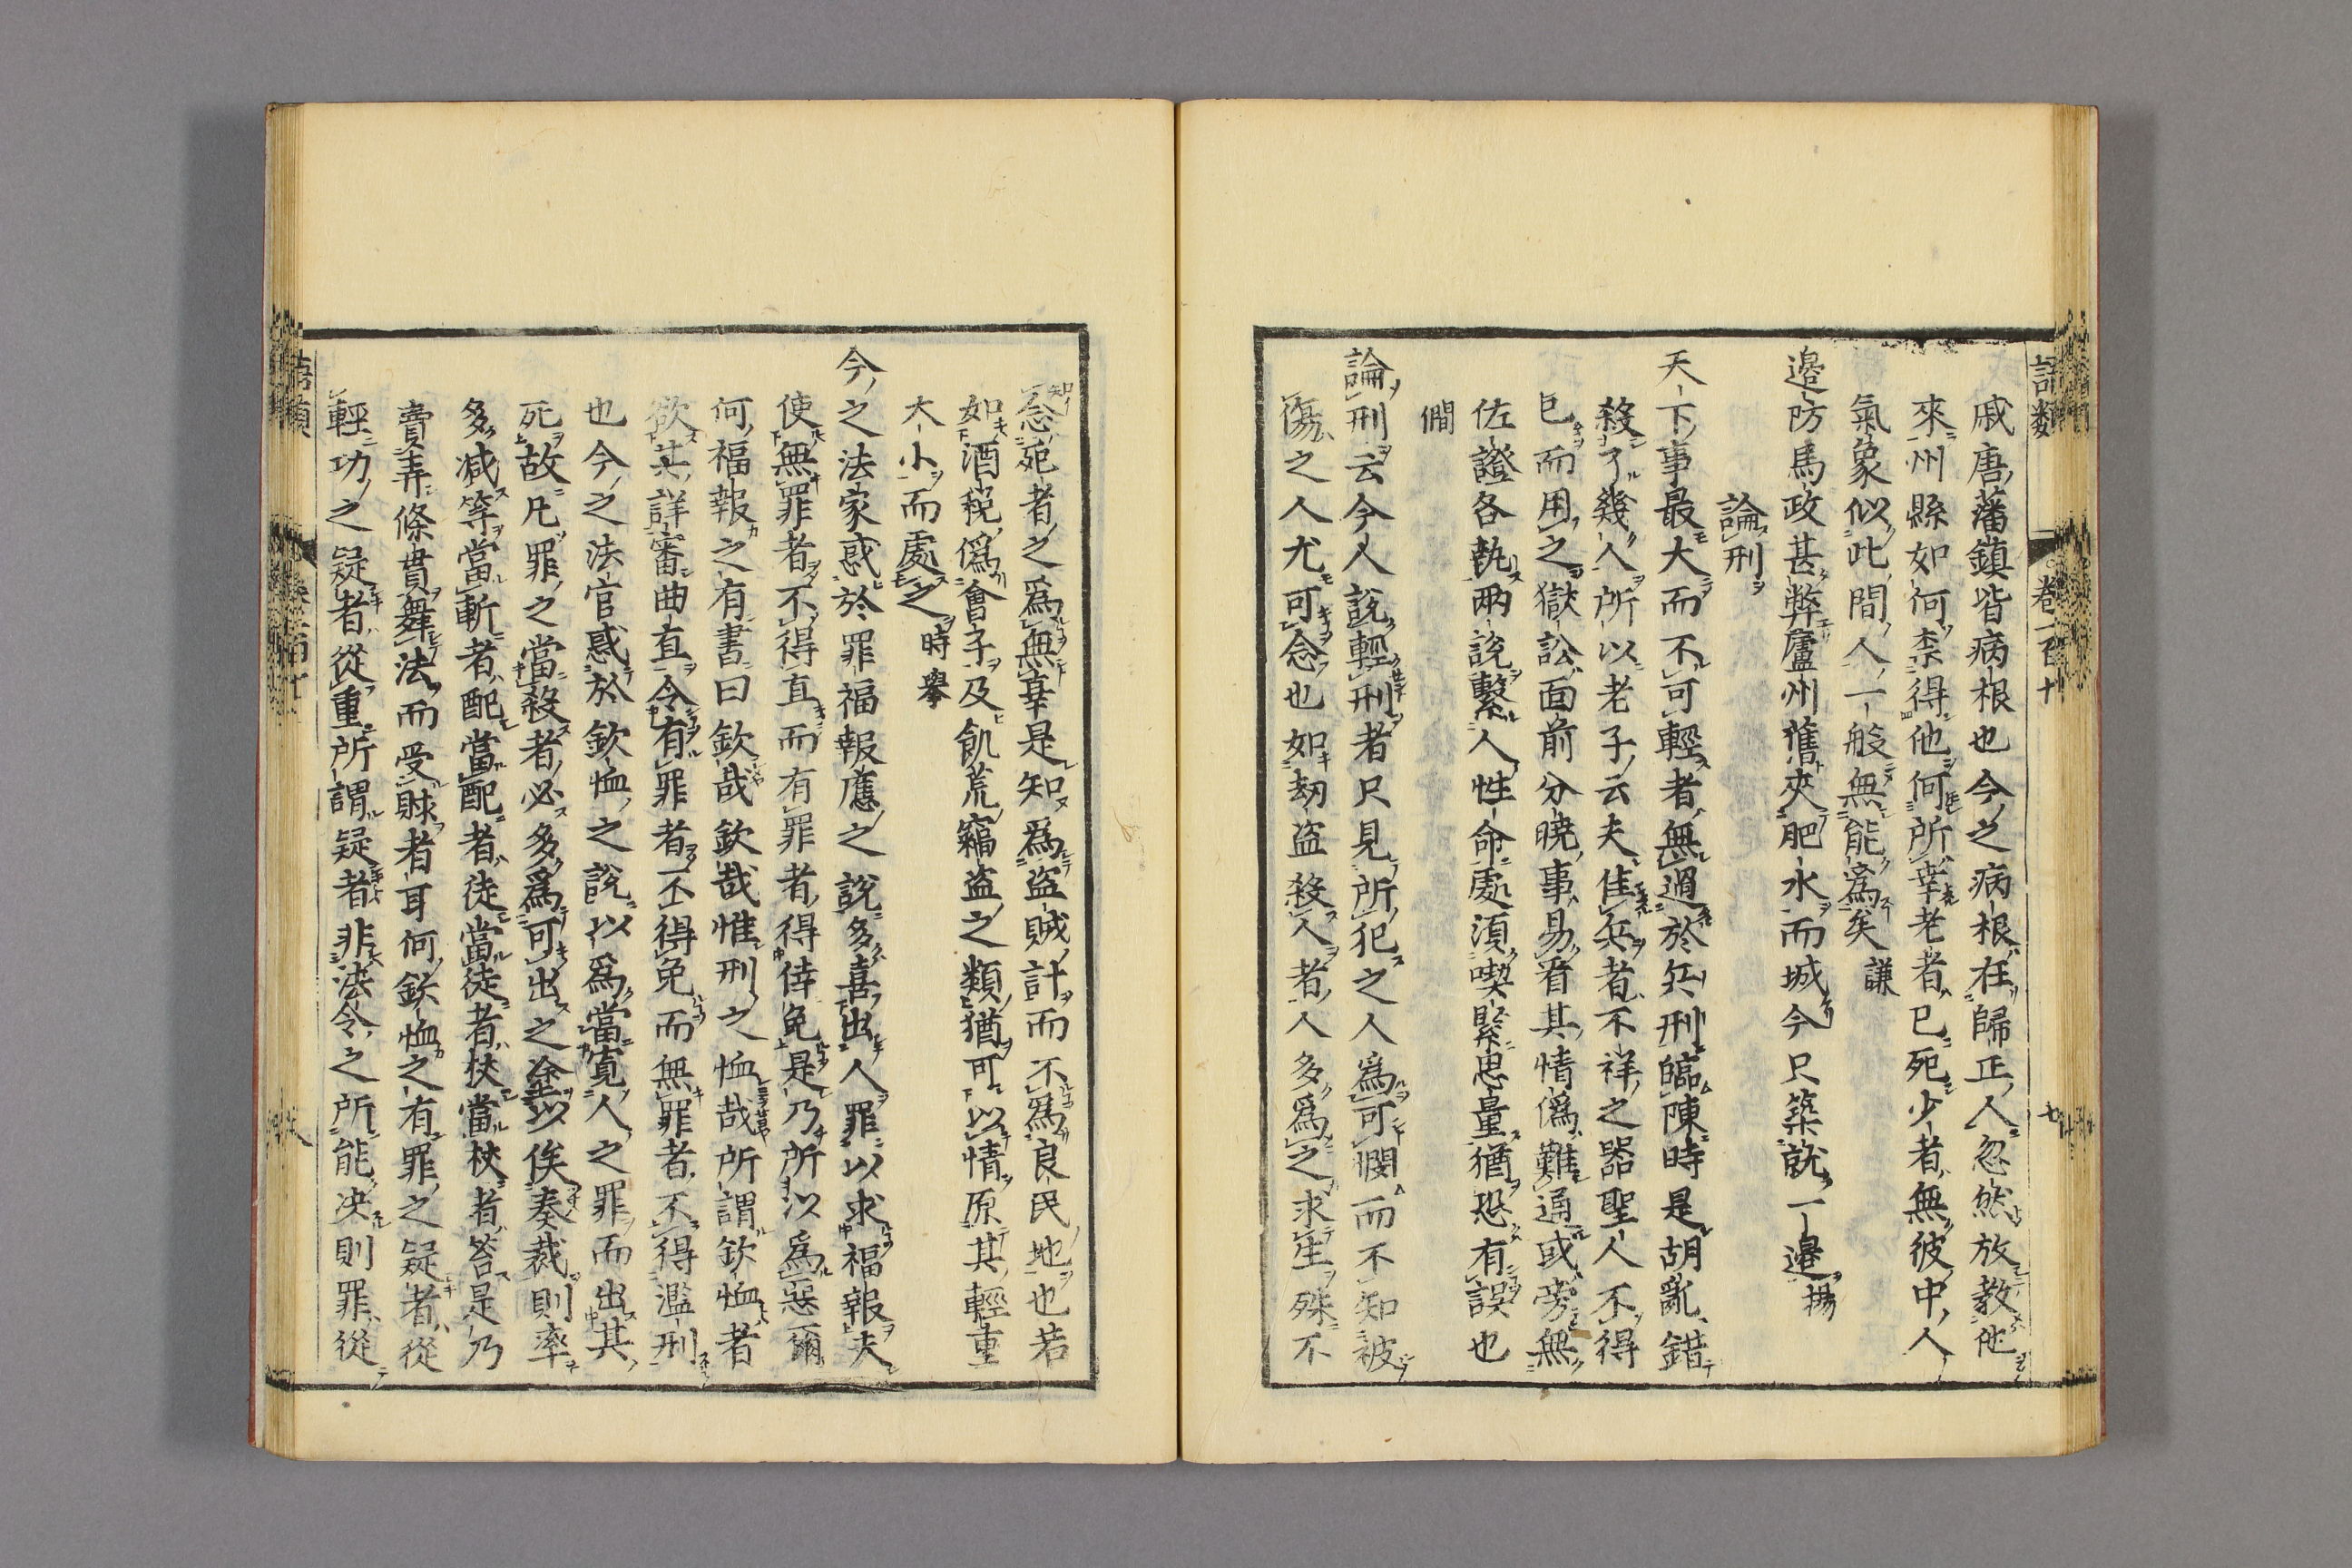 語類 卷一百十 七
戚唐藩鎮皆病根也今之病根在歸正人忽然放教他
來州縣如何柰得他何所幸老者已死少者無彼中人
氣象似此間人一般無能爲矣 謙
邉防馬政甚弊廬州舊夾肥水而城今只築就一邉 揚
論刑
天下事最大而不可輕者無過於兵刑臨陳時是胡亂錯
殺了幾人所以老子云夫佳兵者不祥之器聖人不得
已而用之獄訟面前分曉事易看其情僞難通或旁無
佐證各執兩說繫人性命處湏喫緊思量猶恐有誤也
僩
論刑云今人說輕刑者只見所犯之人爲可憫而不知被
傷之人尤可念也如刼盜殺人者人多爲之求生殊不
念死者之爲無辜是知爲盜賊計而不爲良民地也若
如酒稅僞會子及飢荒竊盜之類猶可以情原其輕重
大小而處之 時擧
今之法家惑於罪福報應之說多喜出人罪以求福報夫
使無罪者不得直而有罪者得倖免是乃所以爲惡爾
何福報之有書曰欽哉欽哉惟刑之恤哉所謂欽恤者
欲其詳審曲直令有罪者不得免而無罪者不得濫刑
也今之法官惑於欽恤之說以爲當寛人之罪而出其
死故凡罪之當殺者必多爲可出之塗以俟奏裁則率
多减等當斬者配當配者徒當徒者杖當杖者笞是乃
賣弄條貫舞法而受賕者耳何欽恤之有罪之疑者從
輕功之疑者從重所謂疑者非法令之所能决則罪從
語類